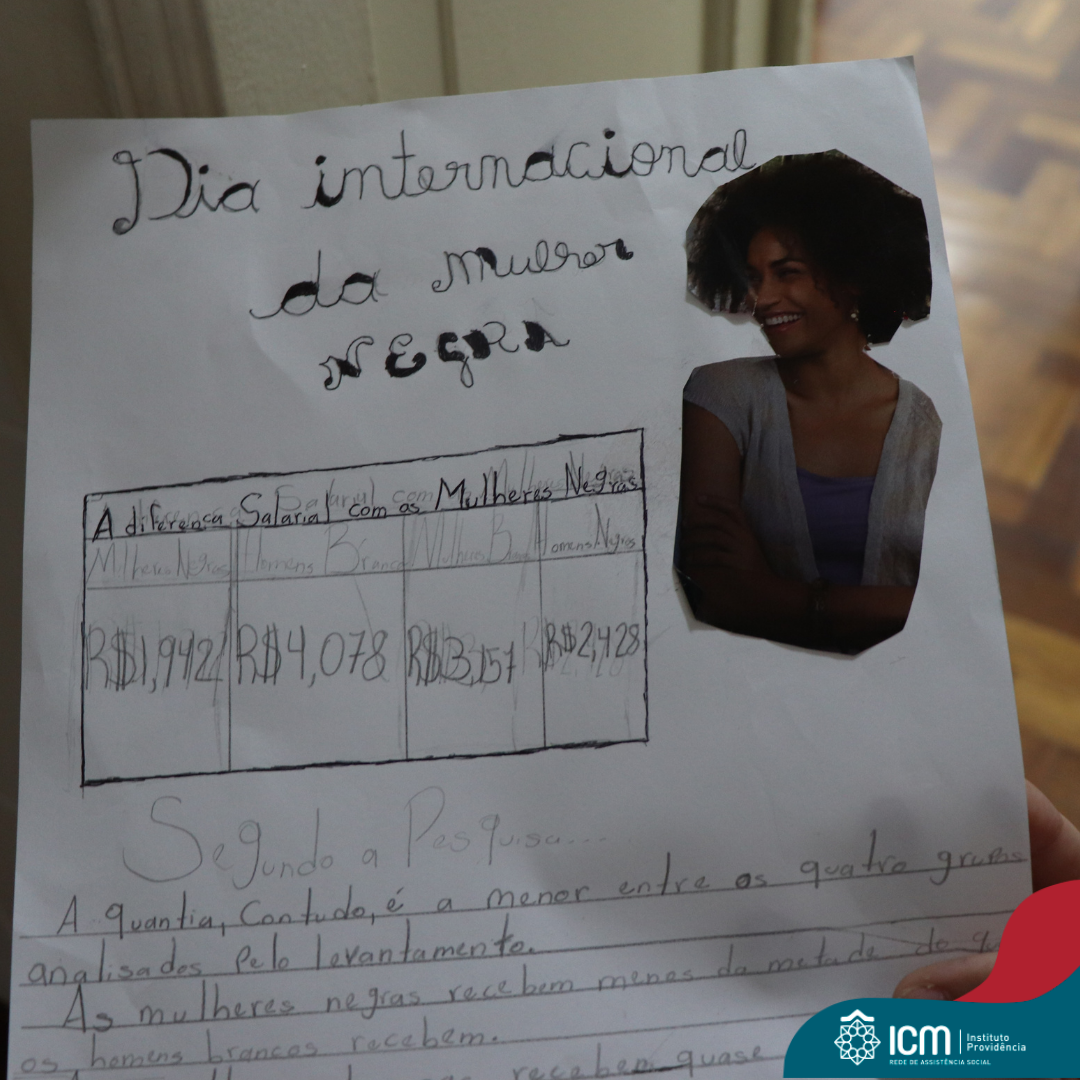 Dia internacional
da mulher
NEGRA
A diferença Salarial com as Mulheres Negras
Mlheres Negras Homens Brancos Mulheres Brancas Homens Negros
R$1,942 R$4,078 R$3,157 R$2,428
Segundo a Pesquisa....
A quantia, Contudo, é a menor entre os quatro grupos
analisados pelo levantamento.
As mulheres negras recebem menos da metade do
os homens brancos recebem.
recebem quase
ICM
Instituto
Providência
REDE DE ASSISTÊNCIA SOCIAL